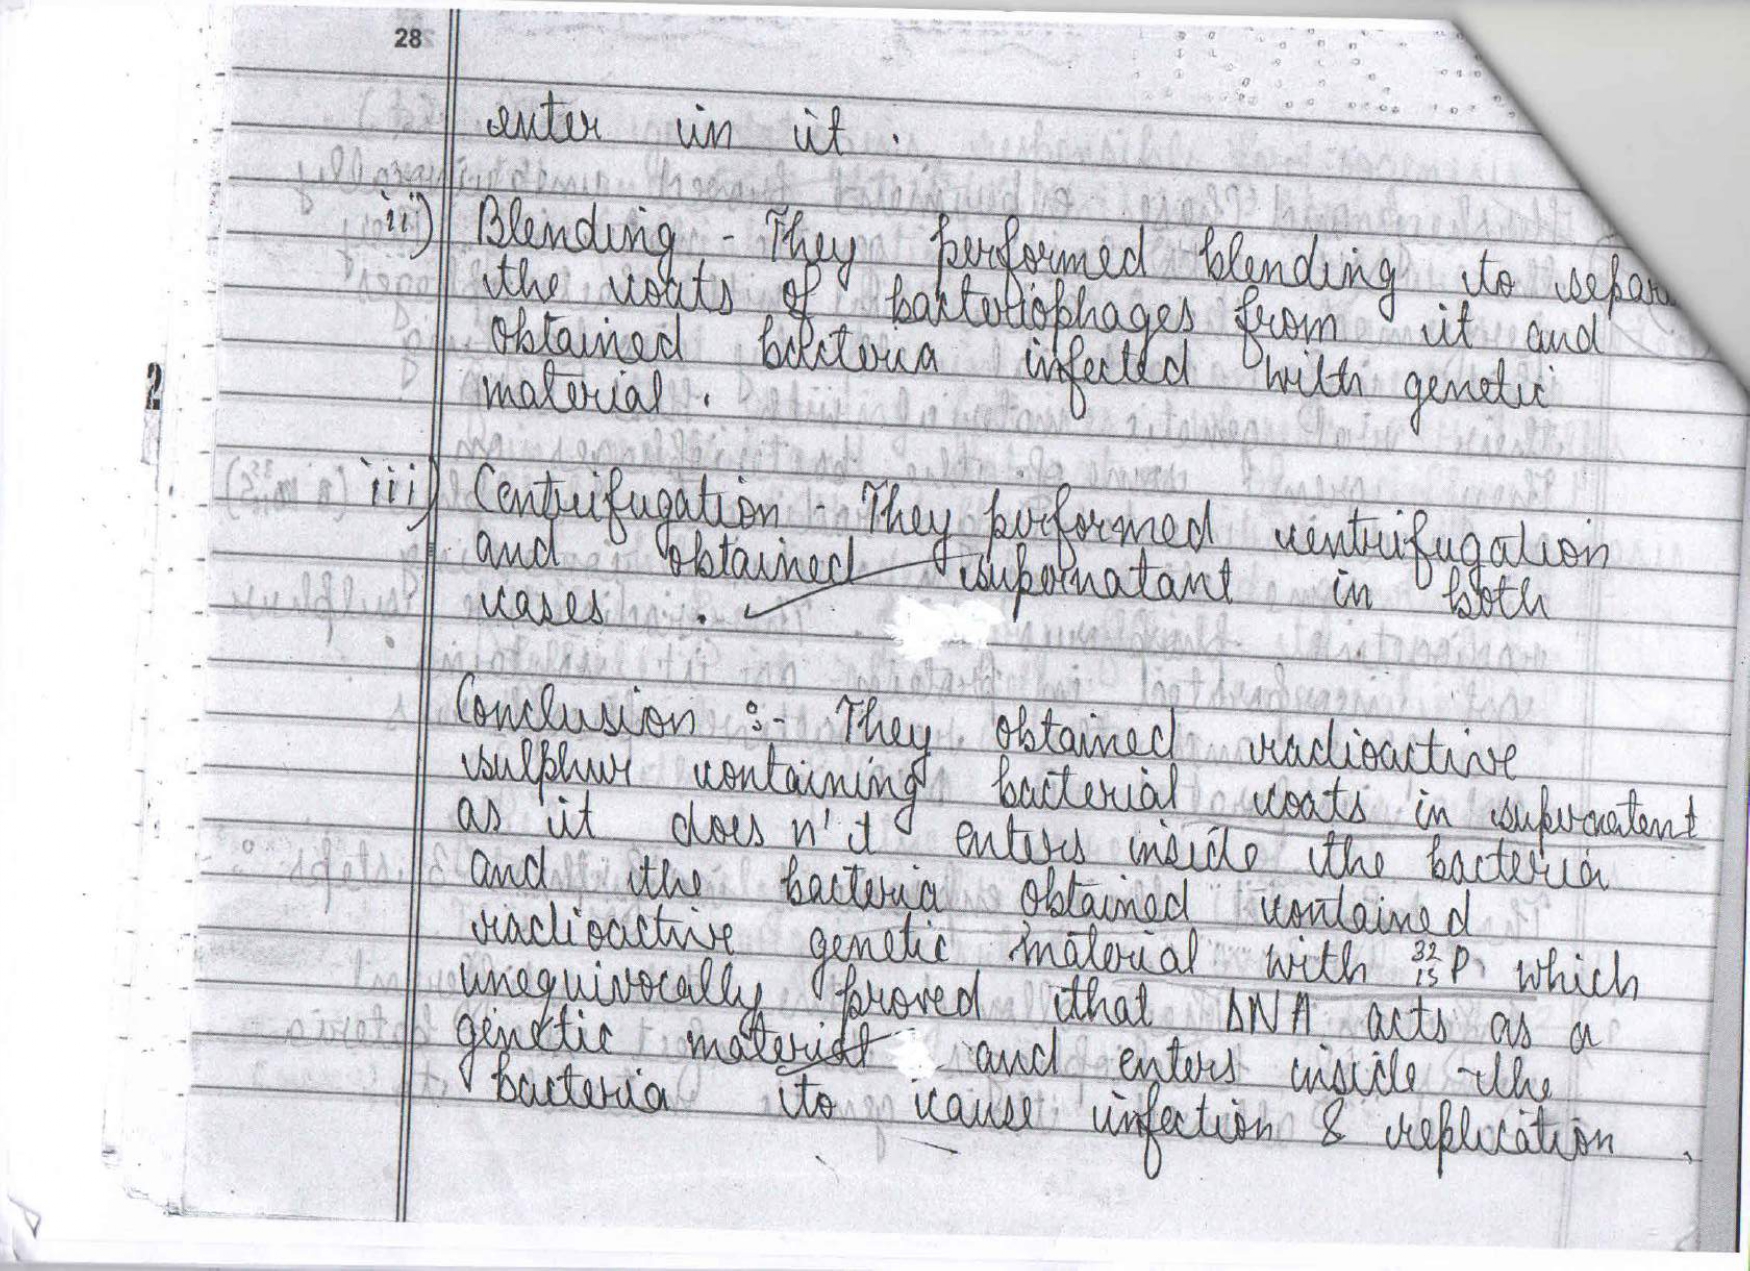 28
enter in it .
ii) Blending - They performed blending to separa
the coats of bacteriophages from it and
obtained bacteria infected with genetic
material .
2
iii) Centrifugation - They performed centrifugation
and obtained supernatant in both
cases .
Conclusion :- They obtained radioactive
sulphur containing bacterial coats in supernatent
as it does n't enters inside the bacteria
and the bacteria obtained contained
radioactive genetic material with ³²₁₅P which
unequivocally proved that DNA acts as a
genetic material and enters inside the
bacteria to cause infection & replication .